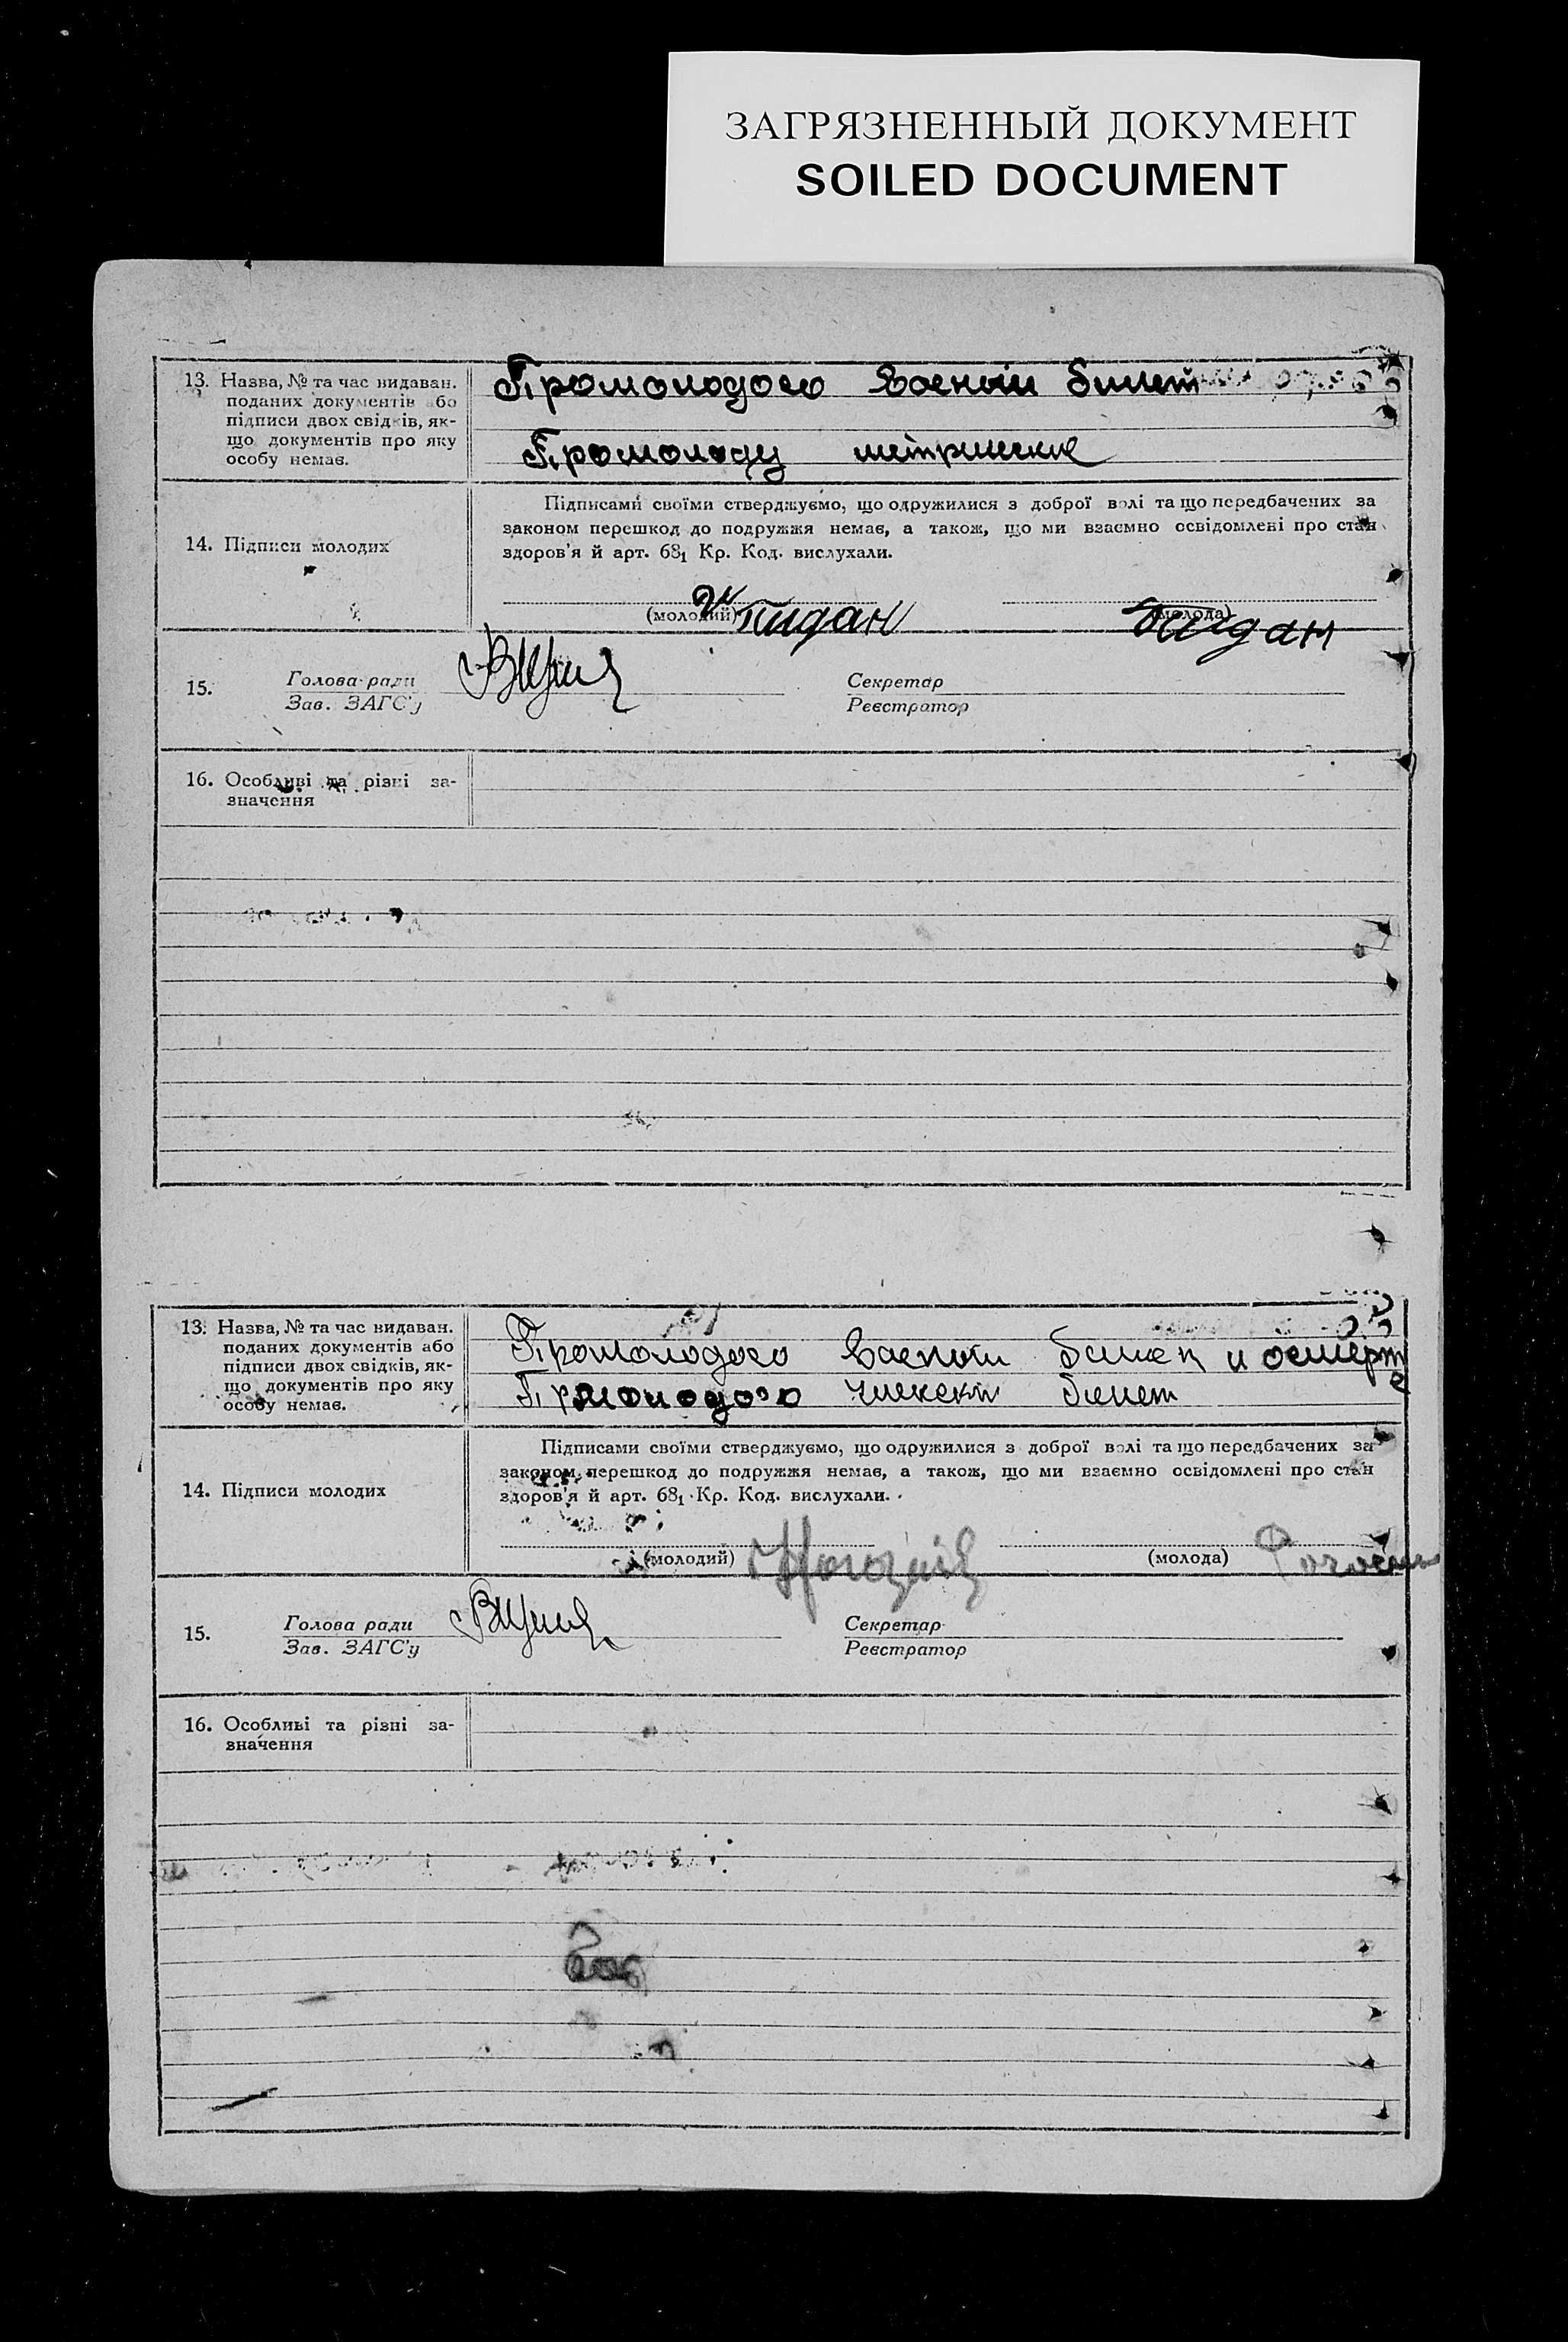 ЗАГРЯЗНЕННЫЙ ДОКУМЕНТ
SOILED DOCUMENT
13. Назва, № та час видаван.
поданих документів або
підписи двох свідків, як-
що документів про яку
особу немає.
Промолодого военый билет
Промолоду метрическ
14. Підписи молодих
Підписами своїми стверджуємо, що одружилися з доброї волі та що передбачених за
законом перешкод до подружжя немає, а також, що ми взаємно освідомлені про стан
здоров'я й арт. 68₁ Кр. Код. вислухали.
(молодий)
(молода)
15.
Голова ради
Зав. ЗАГС'у
Секретар
Реєстратор
16. Особливі та різні за-
значення
13. Назва, № та час видаван.
поданих документів або
підписи двох свідків, як-
що документів про яку
особу немає.
Промолодого военый и
Прмолодого билет
14. Підписи молодих
Підписами своїми стверджуємо, що одружилися з доброї волі та що передбачених за
законом перешкод до подружжя немає, а також, що ми взаємно освідомлені про стан
здоров'я й арт. 68₁ Кр. Код. вислухали.
(молодий)
(молода)
15.
Голова ради
Зав. ЗАГС'у
Секретар
Реєстратор
16. Особливі та різні за-
значення